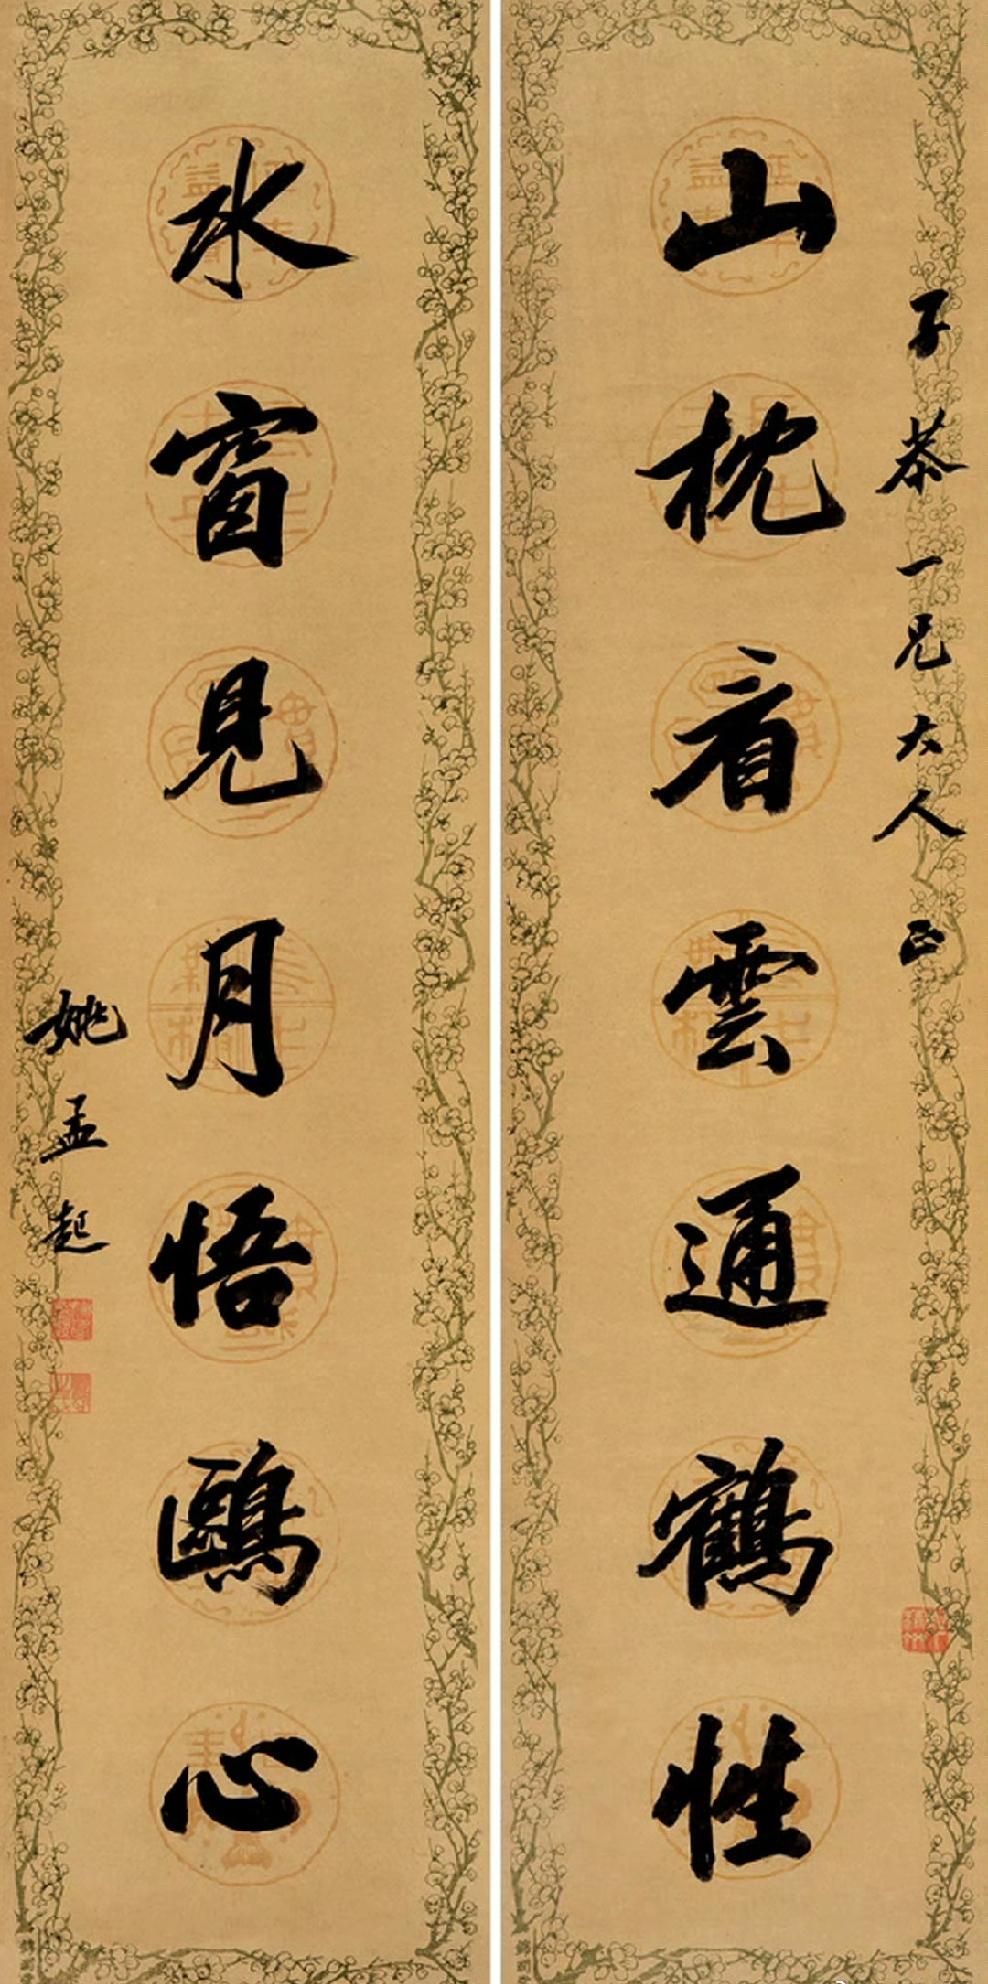 子恭一兄大人正
山枕看雲通鶴性
水窗見月悟鷗心
姚孟起